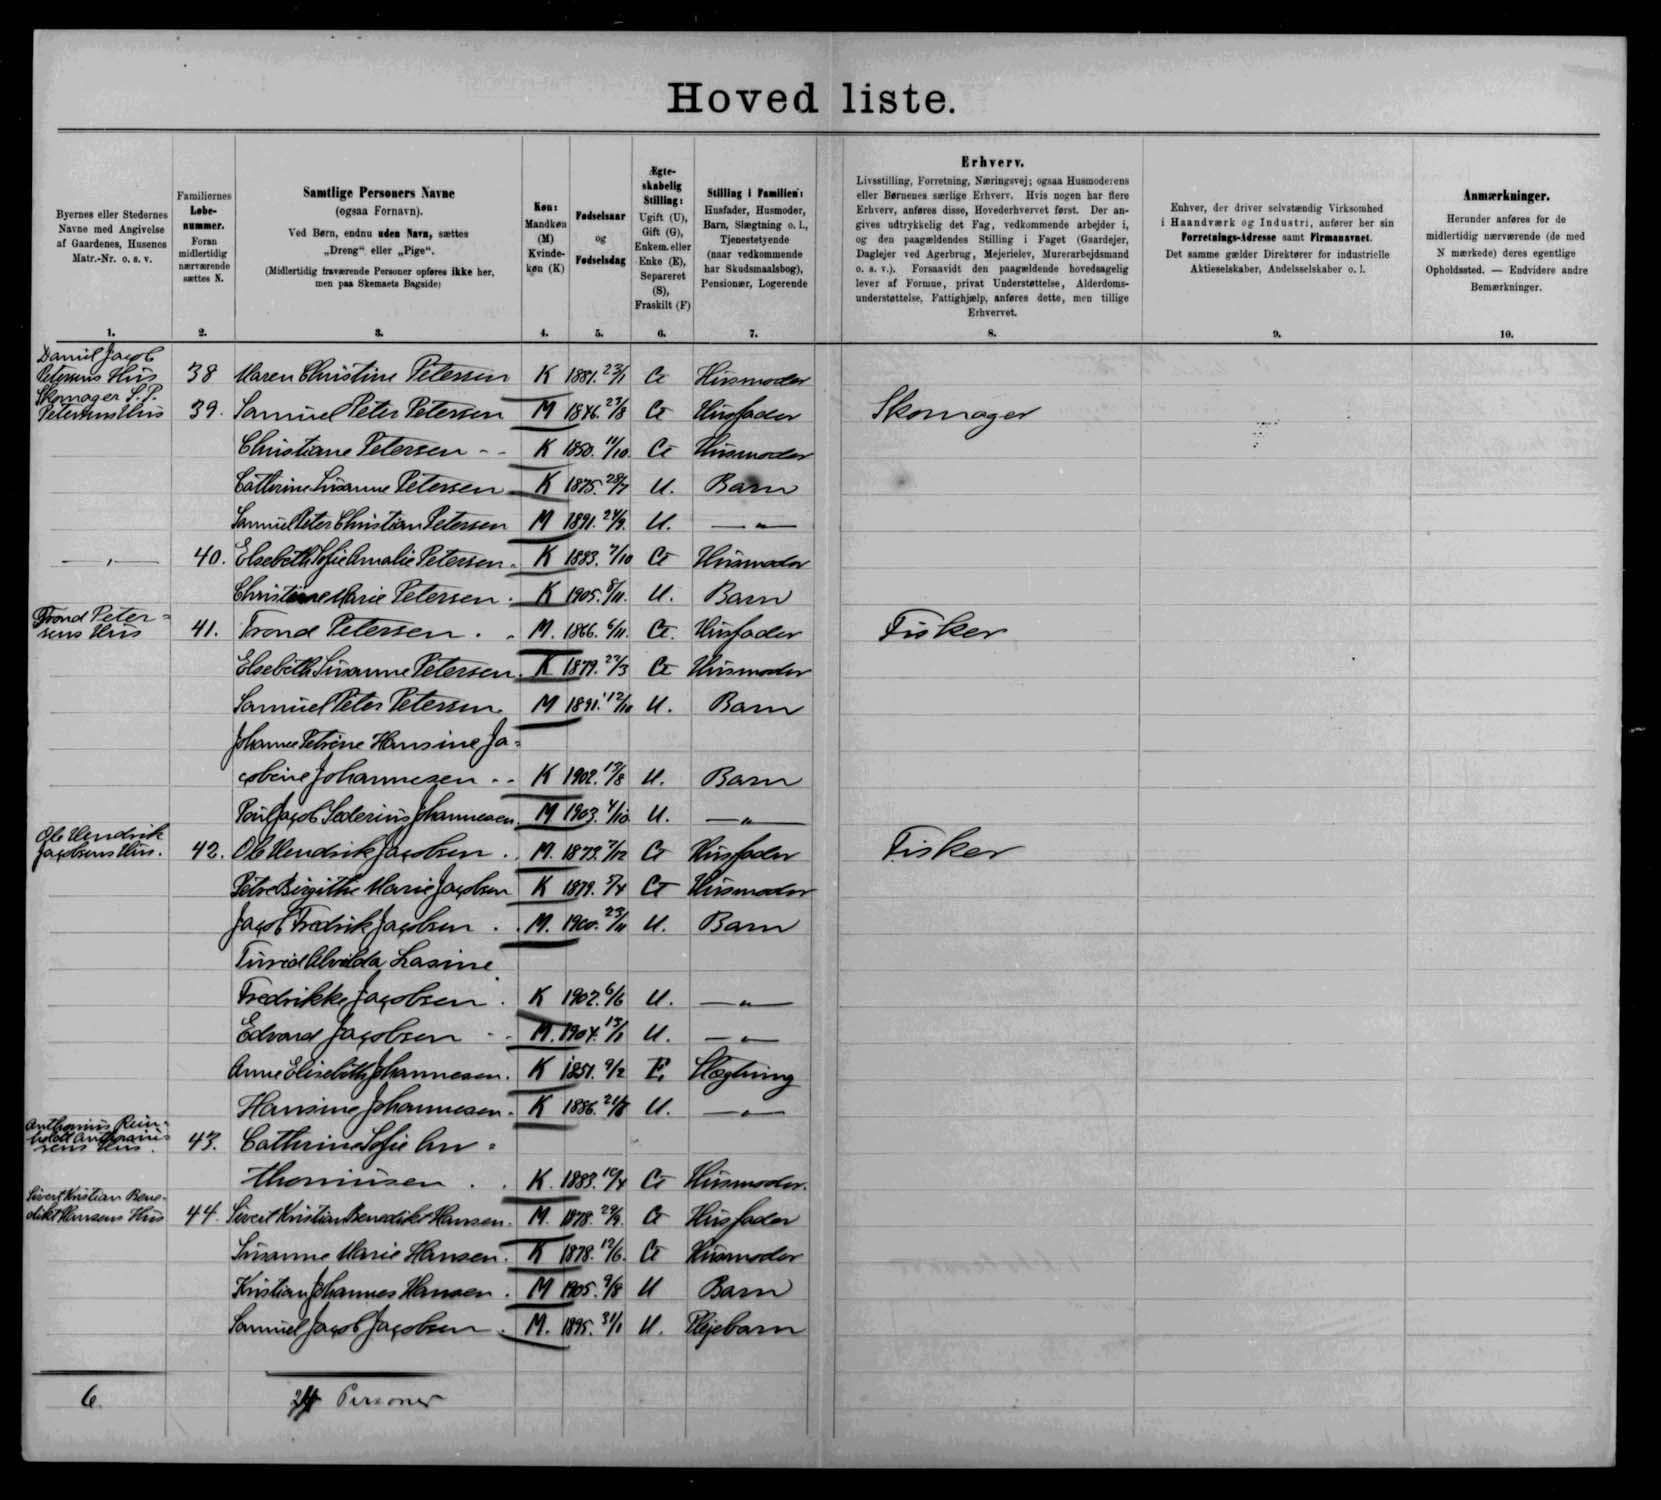 Hoved liste.
Byernes eller Stedernes
Navne med Angivelse
af Gaardenes, Husenes
Matr.-Nr. o. s. v.
1.
Familiernes
Løbe-
nummer.
Foran
midlertidig
nærværende
sættes N.
2.
Samtlige Personers Navne
(ogsaa Fornavn).
Ved Børn, endnu uden Navn, sættes
„Dreng“ eller „Pige“.
(Midlertidig fraværende Personer opføres ikke her,
men paa Skemaets Bagside)
3.
Køn:
Mandkøn
(M)
Kvinde-
køn (K)
4.
Fødselsaar
og
Fødselsdag
5.
Ægte-
skabelig
Stilling:
Ugift (U),
Gift (G),
Enkem. eller
Enke (E),
Separeret
(S),
Fraskilt (F)
6.
Stilling i Familien:
Husfader, Husmoder,
Barn, Slægtning o. l.,
Tjenestetyende
(naar vedkommende
har Skudsmaalsbog),
Pensionær, Logerende
7.
Erhverv.
Livsstilling, Forretning, Næringsvej; ogsaa Husmoderens
eller Børnenes særlige Erhverv. Hvis nogen har flere
Erhverv, anføres disse, Hovederhvervet først. Der an-
gives udtrykkelig det Fag, vedkommende arbejder i,
og den paagældendes Stilling i Faget (Gaardejer,
Daglejer ved Agerbrug, Mejerielev, Murerarbejdsmand
o. s. v.). Forsaavidt den paagældende hovedsagelig
lever af Formue, privat Understøttelse, Alderdoms-
understøttelse, Fattighjælp, anføres dette, men tillige
Erhvervet.
8.
Enhver, der driver selvstændig Virksomhed
i Haandværk og Industri, anfører her sin
Forretnings-Adresse samt Firmanavnet.
Det samme gælder Direktører for industrielle
Aktieselskaber, Andelsselskaber o. l.
9.
Anmærkninger.
Herunder anføres for de
midlertidig nærværende (de med
N mærkede) deres egentlige
Opholdssted. — Endvidere andre
Bemærkninger.
10.
Daniel Jacob
Petersens Hus 38 Maren Christine Petersen K 1881. 23/1 G Husmoder
Skomager S. P.
Petersens Hus 39. Samuel Peter Petersen M 1846. 27/8 G Husfader Skomager
Christiane Petersen - - K 1850. 11/10. G Husmoder
Cathrine Susanne Petersen K 1875. 28/7 U. Barn
Samuel Peter Christian Petersen M 1891. 24/9. U. — „ —
— „ — 40. Elsebeth Sofie Amalie Petersen. K 1883. 7/10 G Husmoder
Christine Marie Petersen. K 1905. 8/11. U. Barn
Trond Peter-
sens Hus 41. Trond Petersen. . M. 1866. 6/11. G. Husfader Fisker
Elsebeth Susanne Petersen. K 1879. 22/3 G Husmoder
Samuel Peter Petersen. M 1891. 12/10 U. Barn
Johanne Petrine Hansine Ja-
cobine Johannesen - - K 1902. 13/8 U. Barn
Poul Jacob Sederius Johannesen. M 1903. 4/10 U. — „ —
Ole Hendrik
Jacobsens Hus. 42. Ole Hendrik Jacobsen. . M. 1873. 7/12 G Husfader Fisker
Petre Birgithe Marie Jacobsen K 1879. 5/4 G Husmoder
Jacob Fredrik Jacobsen. . M. 1900. 23/11 U. Barn
Turid Alvilda Lasine
Fredrikke Jacobsen. K 1902. 6/6 U. — „ —
Edvard Jacobsen - - M. 1904. 13/1 U. — „ —
Anne Elisebeth Johannesen. K 1851. 9/2 E. Slægtning
Hansine Johannesen. K 1886. 21/8 U. — „ —
Anthonius Rein-
holdt Anthonius-
sens Hus. 43. Cathrine Sofie An-
thoniusen. . K. 1883. 10/4 G Husmoder.
Sivert Kristian Bene-
dikt Hansens Hus 44. Sivert Kristian Benedikt Hansen. M. 1878. 29/9. G Husfader
Susanne Marie Hansen. K 1878. 12/6. G Husmoder
Kristian Johannes Hansen. M 1905. 9/8 U Barn
Samuel Jacob Jacobsen. M. 1895. 31/1 U. Plejebarn
6. Personer